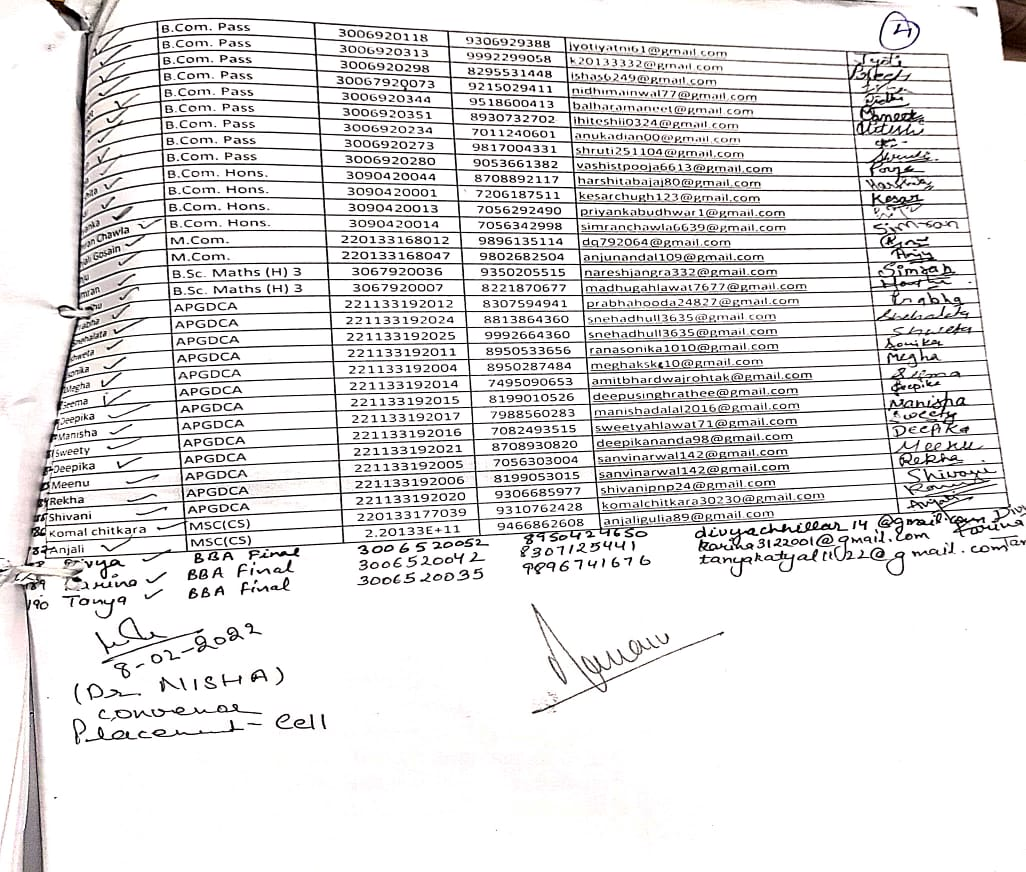 4
B.Com. Pass 3006920118 9306929388 jyotiyatni61@gmail.com Jyoti
B.Com. Pass 3006920313 9992299058 k20133332@gmail.com
B.Com. Pass 3006920298 8295531448 ishas6249@gmail.com
B.Com. Pass 30067920073 9215029411 nidhimainwal77@gmail.com Nidhi
B.Com. Pass 3006920344 9518600413 balharamaneet@gmail.com Maneet
B.Com. Pass 3006920351 8930732702 ihiteshii0324@gmail.com Hiteshi
B.Com. Pass 3006920234 7011240601 anukadian00@gmail.com
B.Com. Pass 3006920273 9817004331 shruti251104@gmail.com Shruti
B.Com. Pass 3006920280 9053661382 vashistpooja6613@gmail.com Pooja
B.Com. Hons. 3090420044 8708892117 harshitabajaj80@gmail.com Harshita
B.Com. Hons. 3090420001 7206187511 kesarchugh123@gmail.com Kesar
B.Com. Hons. 3090420013 7056292490 priyankabudhwar1@gmail.com
Chawla B.Com. Hons. 3090420014 7056342998 simranchawla6639@gmail.com Simran
Gosain M.Com. 220133168012 9896135114 dq792064@gmail.com
M.Com. 220133168047 9802682504 anjunandal109@gmail.com Anju
B.Sc. Maths (H) 3 3067920036 9350205515 nareshjangra332@gmail.com Simran
B.Sc. Maths (H) 3 3067920007 8221870677 madhugahlawat7677@gmail.com
APGDCA 221133192012 8307594941 prabhahooda24827@gmail.com Prabha
Snehalata APGDCA 221133192024 8813864360 snehadhull3635@gmail.com Snehalata
Shweta APGDCA 221133192025 9992664360 snehadhull3635@gmail.com Shweta
Sonika APGDCA 221133192011 8950533656 ranasonika1010@gmail.com Sonika
Megha APGDCA 221133192004 8950287484 meghakskk10@gmail.com Megha
Seema APGDCA 221133192014 7495090653 amitbhardwajrohtak@gmail.com Seema
Deepika APGDCA 221133192015 8199010526 deepusinghrathee@gmail.com Deepika
Manisha APGDCA 221133192017 7988560283 manishadalal2016@gmail.com Manisha
Sweety APGDCA 221133192016 7082493515 sweetyahlawat71@gmail.com Sweety
Deepika APGDCA 221133192021 8708930820 deepikananda98@gmail.com Deepika
Meenu APGDCA 221133192005 7056303004 sanvinarwal142@gmail.com Meenu
Rekha APGDCA 221133192006 8199053015 sanvinarwal142@gmail.com Rekha
Shivani APGDCA 221133192020 9306685977 shivanipnp24@gmail.com Shivani
186 Komal chitkara MSC(CS) 220133177039 9310762428 komalchitkara30230@gmail.com
187 Anjali MSC(CS) 2.20133E+11 9466862608 anjaligulia89@gmail.com Anjali
Divya BBA Final 3006520052 8950424650 divyachhillar14@gmail.com
189 Karina BBA Final 3006520042 8307125441 karina3122001@gmail.com Karina
190 Tanya BBA Final 3006520035 9896741676 tanyakatyal11022@gmail.com
8-02-2022
(Dr. NISHA)
Convenor
Placement-Cell